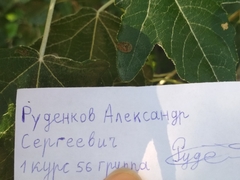 Руденков Александр
Сергеевич
1 курс 56 группа
Руде